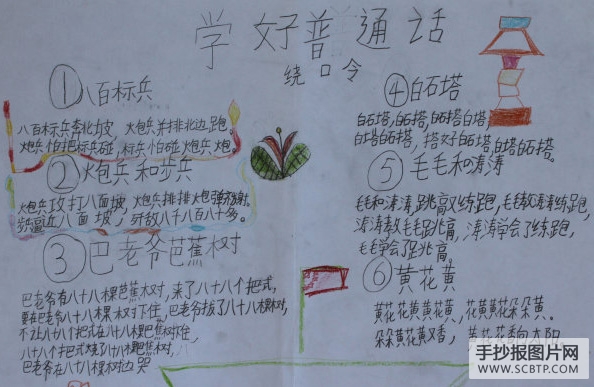 学好普通话
绕口令
①八百标兵
八百标兵奔北坡，火炮兵并排北边跑。
炮兵怕把标兵碰，标兵怕碰炮兵炮。
②炮兵和步兵
炮兵攻打八面坡，炮兵排排炮弹齐发射。
步兵逼近八面坡，歼敌八千八百八十多。
③巴老爷芭蕉树
巴老爷有八十八棵芭蕉树，来了八十八个把式，
要在巴老爷八十八棵树下住，巴老爷拔了八十八棵树，
不让八十八个把式在八十八棵芭蕉树
八十八个把式烧了八十八棵芭蕉树，
巴老爷在八十八棵树边哭
④白石塔
白石塔，白石搭，白石搭白塔，
白塔白石搭，搭好白石塔，白塔白石塔。
⑤毛毛和涛涛
毛毛和涛涛，跳高又练跑，毛毛教涛涛练跑，
涛涛教毛毛跳高，涛涛学会了练跑，
毛毛学会了跳高。
⑥黄花黄
黄花花黄黄花黄，花黄黄花朵朵黄。
朵朵黄花黄又香，黄花花香向太阳。
手抄报图片网
WWW.SCBTP.COM